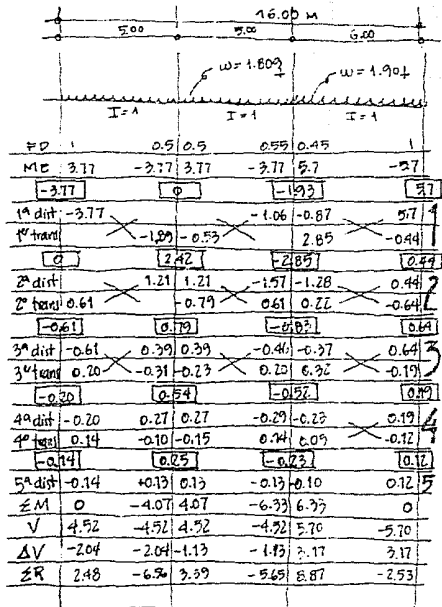 16.00 M
5.00 5.00 6.00
w=1.809 w=1.90
I=1 I=1 I=1
FD 1 0.5 0.5 0.55 0.45 1
ME 3.77 -3.77 3.77 -3.77 5.7 -5.7
-3.77 0 -1.93 5.7
1ª dist -3.77 -1.06 -0.87 5.7 1
1º trans -1.89 -0.53 2.85 -0.44
0 2.42 -2.85 0.44
2ª dist 1.21 1.21 -1.57 -1.28 0.44 2
2º trans 0.61 -0.79 0.61 0.22 -0.64
-0.61 0.79 -0.83 0.64
3ª dist -0.61 0.39 0.39 -0.46 -0.37 0.64 3
3º trans 0.20 -0.31 -0.23 0.20 0.32 -0.19
-0.20 0.54 -0.52 0.19
4ª dist -0.20 0.27 0.27 -0.29 -0.23 0.19 4
4º trans 0.14 -0.10 -0.15 0.14 0.09 -0.12
-0.14 0.25 -0.23 0.12
5ª dist -0.14 +0.13 0.13 -0.13 -0.10 0.12 5
ΣM 0 -4.07 4.07 -6.33 6.33 0
V 4.52 -4.52 4.52 -4.52 5.70 -5.70
ΔV -2.04 -2.04 -1.13 -1.13 3.17 3.17
ΣR 2.48 -6.56 3.39 -5.65 8.87 -2.53